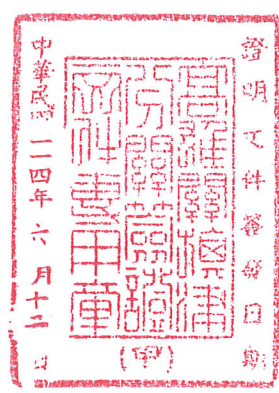 證明文件簽發日期
高雄關旗津
分關簽證
文件專用章
(甲)
中華民國一一四年六月十二日